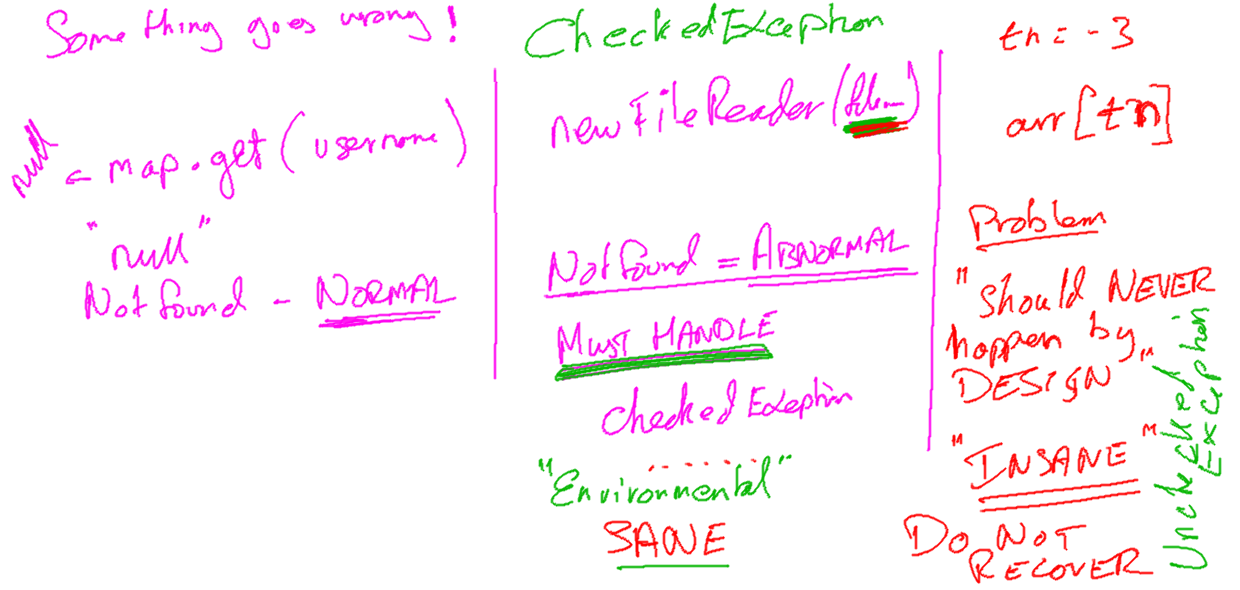 Something goes wrong!
null ← map.get(username)
"null"
Not found - NORMAL
CheckedException
new FileReader(
Not found = ABNORMAL
MUST HANDLE
checked Exception
"Environmental"
SANE
tn = -3
arr[tn]
Problem
"should NEVER
happen by
DESIGN"
"INSANE"
DO NOT
RECOVER
Unchecked
Exception